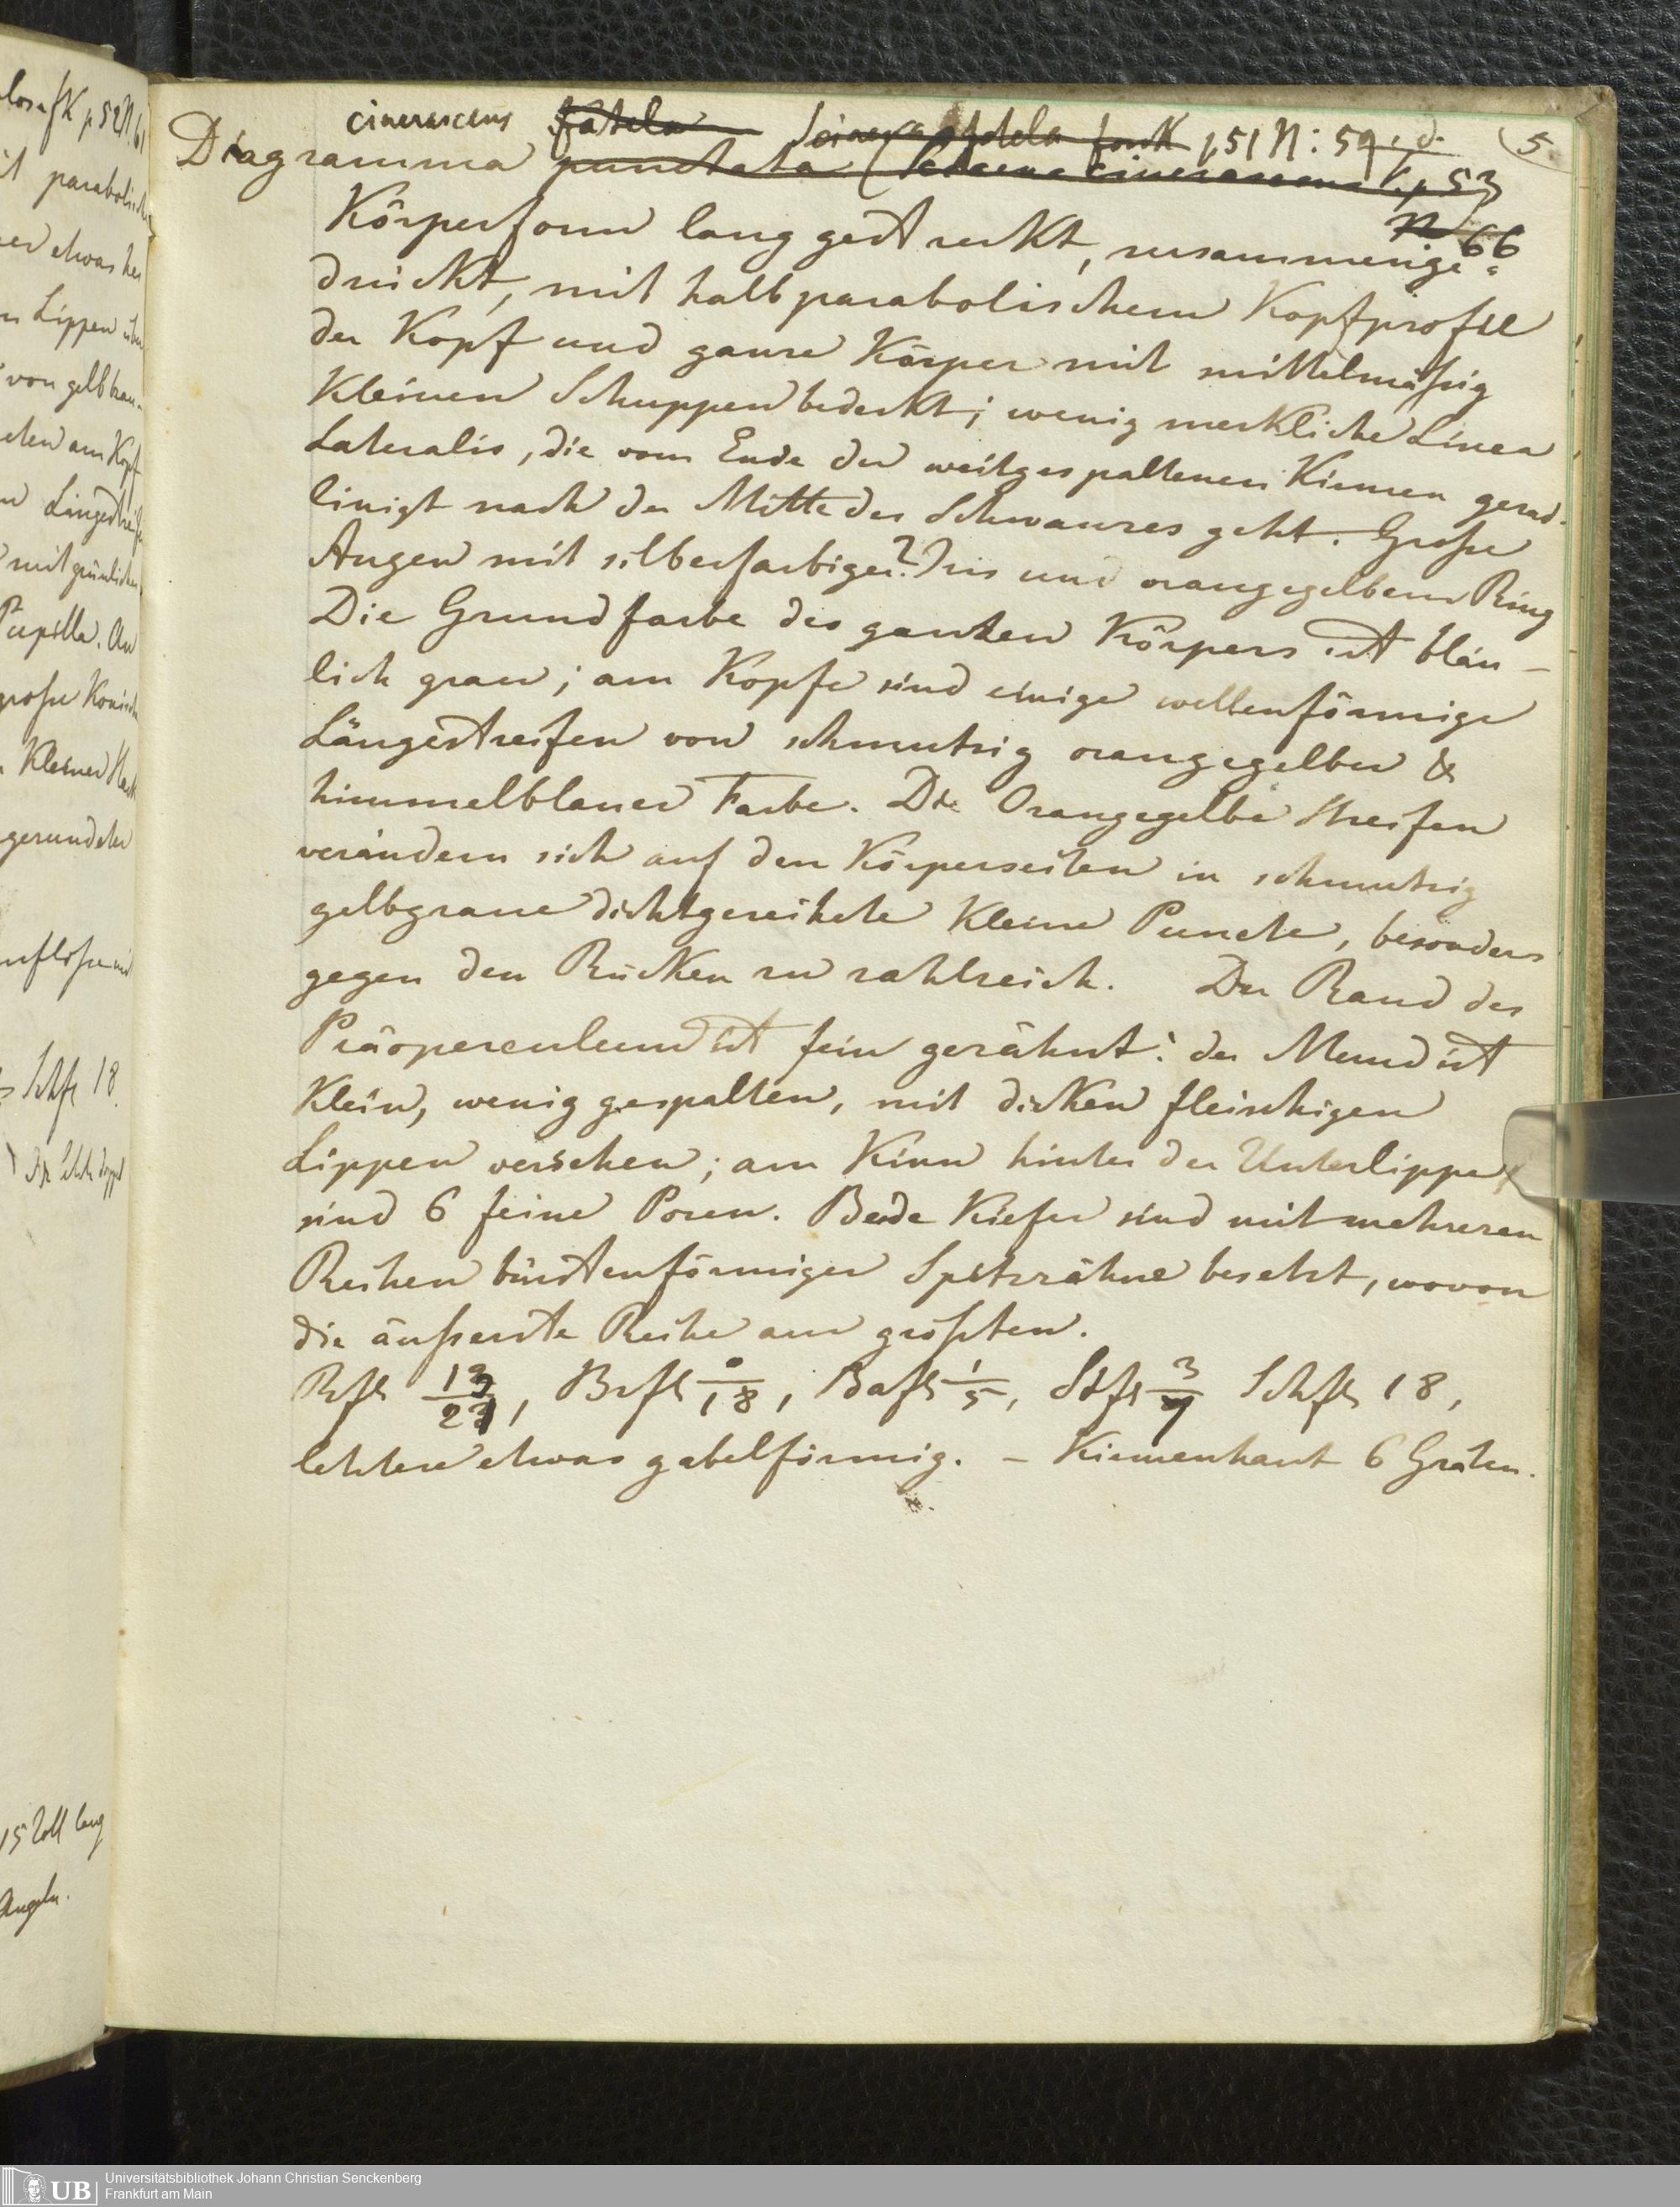 cinerascens fatela Sciaena fatela forsk p 51 N: 59, d. 5
Diagramma punctata (Sciaena cinerascens F. p 53
N 66
Körperform lang gestreckt, zusammenge=
drückt, mit halbparabolischem Kopfprofil
der Kopf und ganze Körper mit mittelmäßig
kleinen Schuppen bedeckt; wenig merkliche Linea
Lateralis, die vom Ende der weitgespaltenen Kiemen gerad-
linigt nach der Mitte des Schwanzes geht. Große
Augen mit silberfarbiger? Iris und orangegelbem Ring
Die Grundfarbe des ganzen Körpers ist bläu-
lich grau; am Kopfe sind einige wellenförmige
Längestreifen von schmutzig orangegelber &
himmelblauer Farbe. Die Orangegelbe Streifen
verändern sich auf den Körperseiten in schmutzig
gelbgraue dichtgereihete kleine Puncte, besonders
gegen den Rücken zu zahlreich. Der Rand des
Präoperculum ist fein gezähnt: der Mund ist
klein, wenig gespalten, mit dicken fleischigen
Lippen versehen; am Kinn hinter der Unterlippe
sind 6 feine Poren. Beide Kiefer sind mit mehreren
Reihen bürstenförmiger Spitzzähne besetzt, wovon
die äußerste Reihe am größten.
Rfl 12/21, Brfl 0/18, Bafl 1/5, Stfl 3/7 Schfl 18,
letztere etwas gabelförmig. – Kiemenhaut 6 Gräten.
losa fK p 52 N. 61
it parabolisch
er etwas her
n Lippen
von gelbbrau-
cken am Kopf
n Längestreif
mit grünlicher
Pupille. An
große Konisch
kleiner
gerundeter
Schfl 18.
15 Zoll lang
Angeln.
UB Universitätsbibliothek Johann Christian Senckenberg
Frankfurt am Main